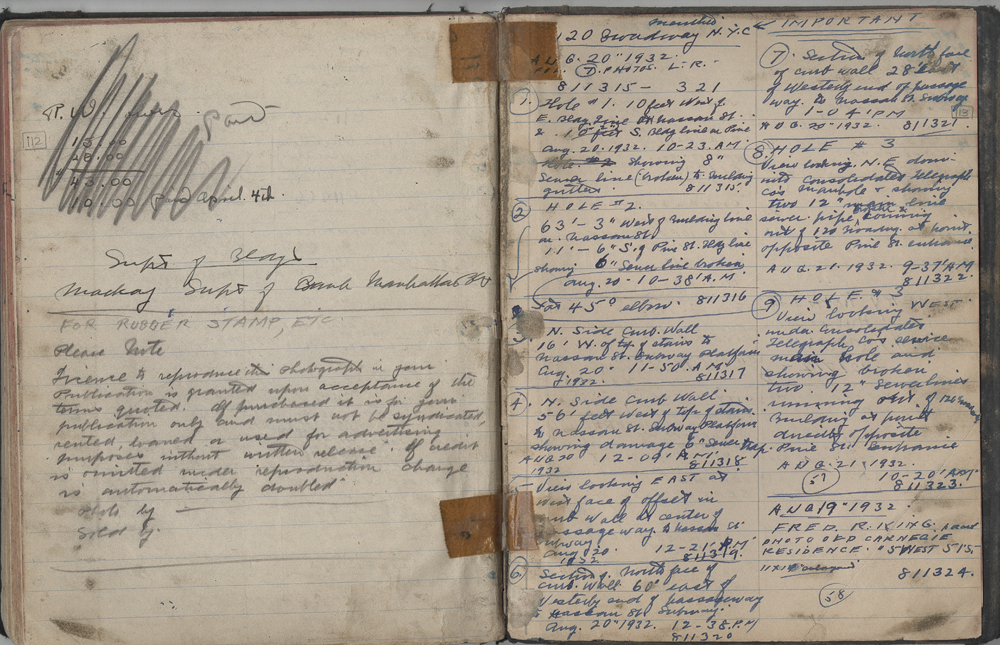 R. W.
Paid
112
15.00
28.00
43.00
10.00 Paid April. 4th
Supt of Bldgs
Mackay Supt of Bank Manhattan Co
FOR RUBBER STAMP, ETC.
Please Note
License to reproduce this photograph in your
publication is granted upon acceptance of the
terms quoted. If purchased it is for
publication only and must not be syndicated,
rented, loaned or used for advertising
purposes without written release. If credit
is omitted under reproduction charge
is automatically doubled
Photo by —
Sold by
120 Broadway N.Y.C
AUG. 20" 1932.
7 PHOTOS. L.R.
811315 - 321
1. Hole #1. 10 feet West of
E. Bldg. Line at Nassau St.
& 10 feet S. Bldg line on Pine
Aug. 20. 1932. 10-23. A.M
showing 8"
Sewer line (broken) to building
gutter. 811315.
2 HOLE #2.
63'-3" West of Building line
on Nassau St.
11'-6" S. of Pine St. Bldg line
showing 6" Sewer line broken
Aug. 20 - 10-38' A.M.
45° elbow. 811316
3. N. Side Curb. Wall
16' W. of top of stairs to
Nassau St. Subway Platform
Aug. 20" - 11-50. A.M
1932. 811317
4. N. Side Curb Wall
56' feet West of Top of stairs
to Nassau St. Subway Platform
showing damage 6" Sewer Trap.
AUG 20 12-09' A.M.
1932 811318
View looking EAST at
West face of offset in
Curb Wall at center of
passage way to Nassau St
Subway.
Aug 20 12-21' P.M
1932 811319
6 Section of North face of
Curb. Wall 60' east of
Westerly end of passageway
to Nassau St. Subway.
Aug. 20" 1932. 12-38. P.M
811320
IMPORTANT
7. Section of North face
of curb wall 28' East
of Westerly end of passage
way. to Nassau St. Subway
1-04' P.M
AUG. 20" 1932. 811321
8. HOLE #3
View looking N.E down
into Consolidated Telegraph
Co's manhole & showing
two 12" main line
sewer pipe running
out of 120 Broadway at point
opposite Pine St. entrance.
AUG. 21. 1932. 9-37' A.M
811322
9 HOLE. #3
View looking WEST
under Consolidated
Telegraph Co's service
main hole and
showing broken
two 12" Sewer lines
running out. of 120 Broadway
Building at point
directly opposite
Pine St. Entrance
AUG. 21. 1932.
57 10-20' A.M
811323.
AUG 19" 1932
FRED. R. KING.
PHOTO OLD CARNEGIE
RESIDENCE. 5 WEST 51 S.
11x14 enlarged
811324.
58